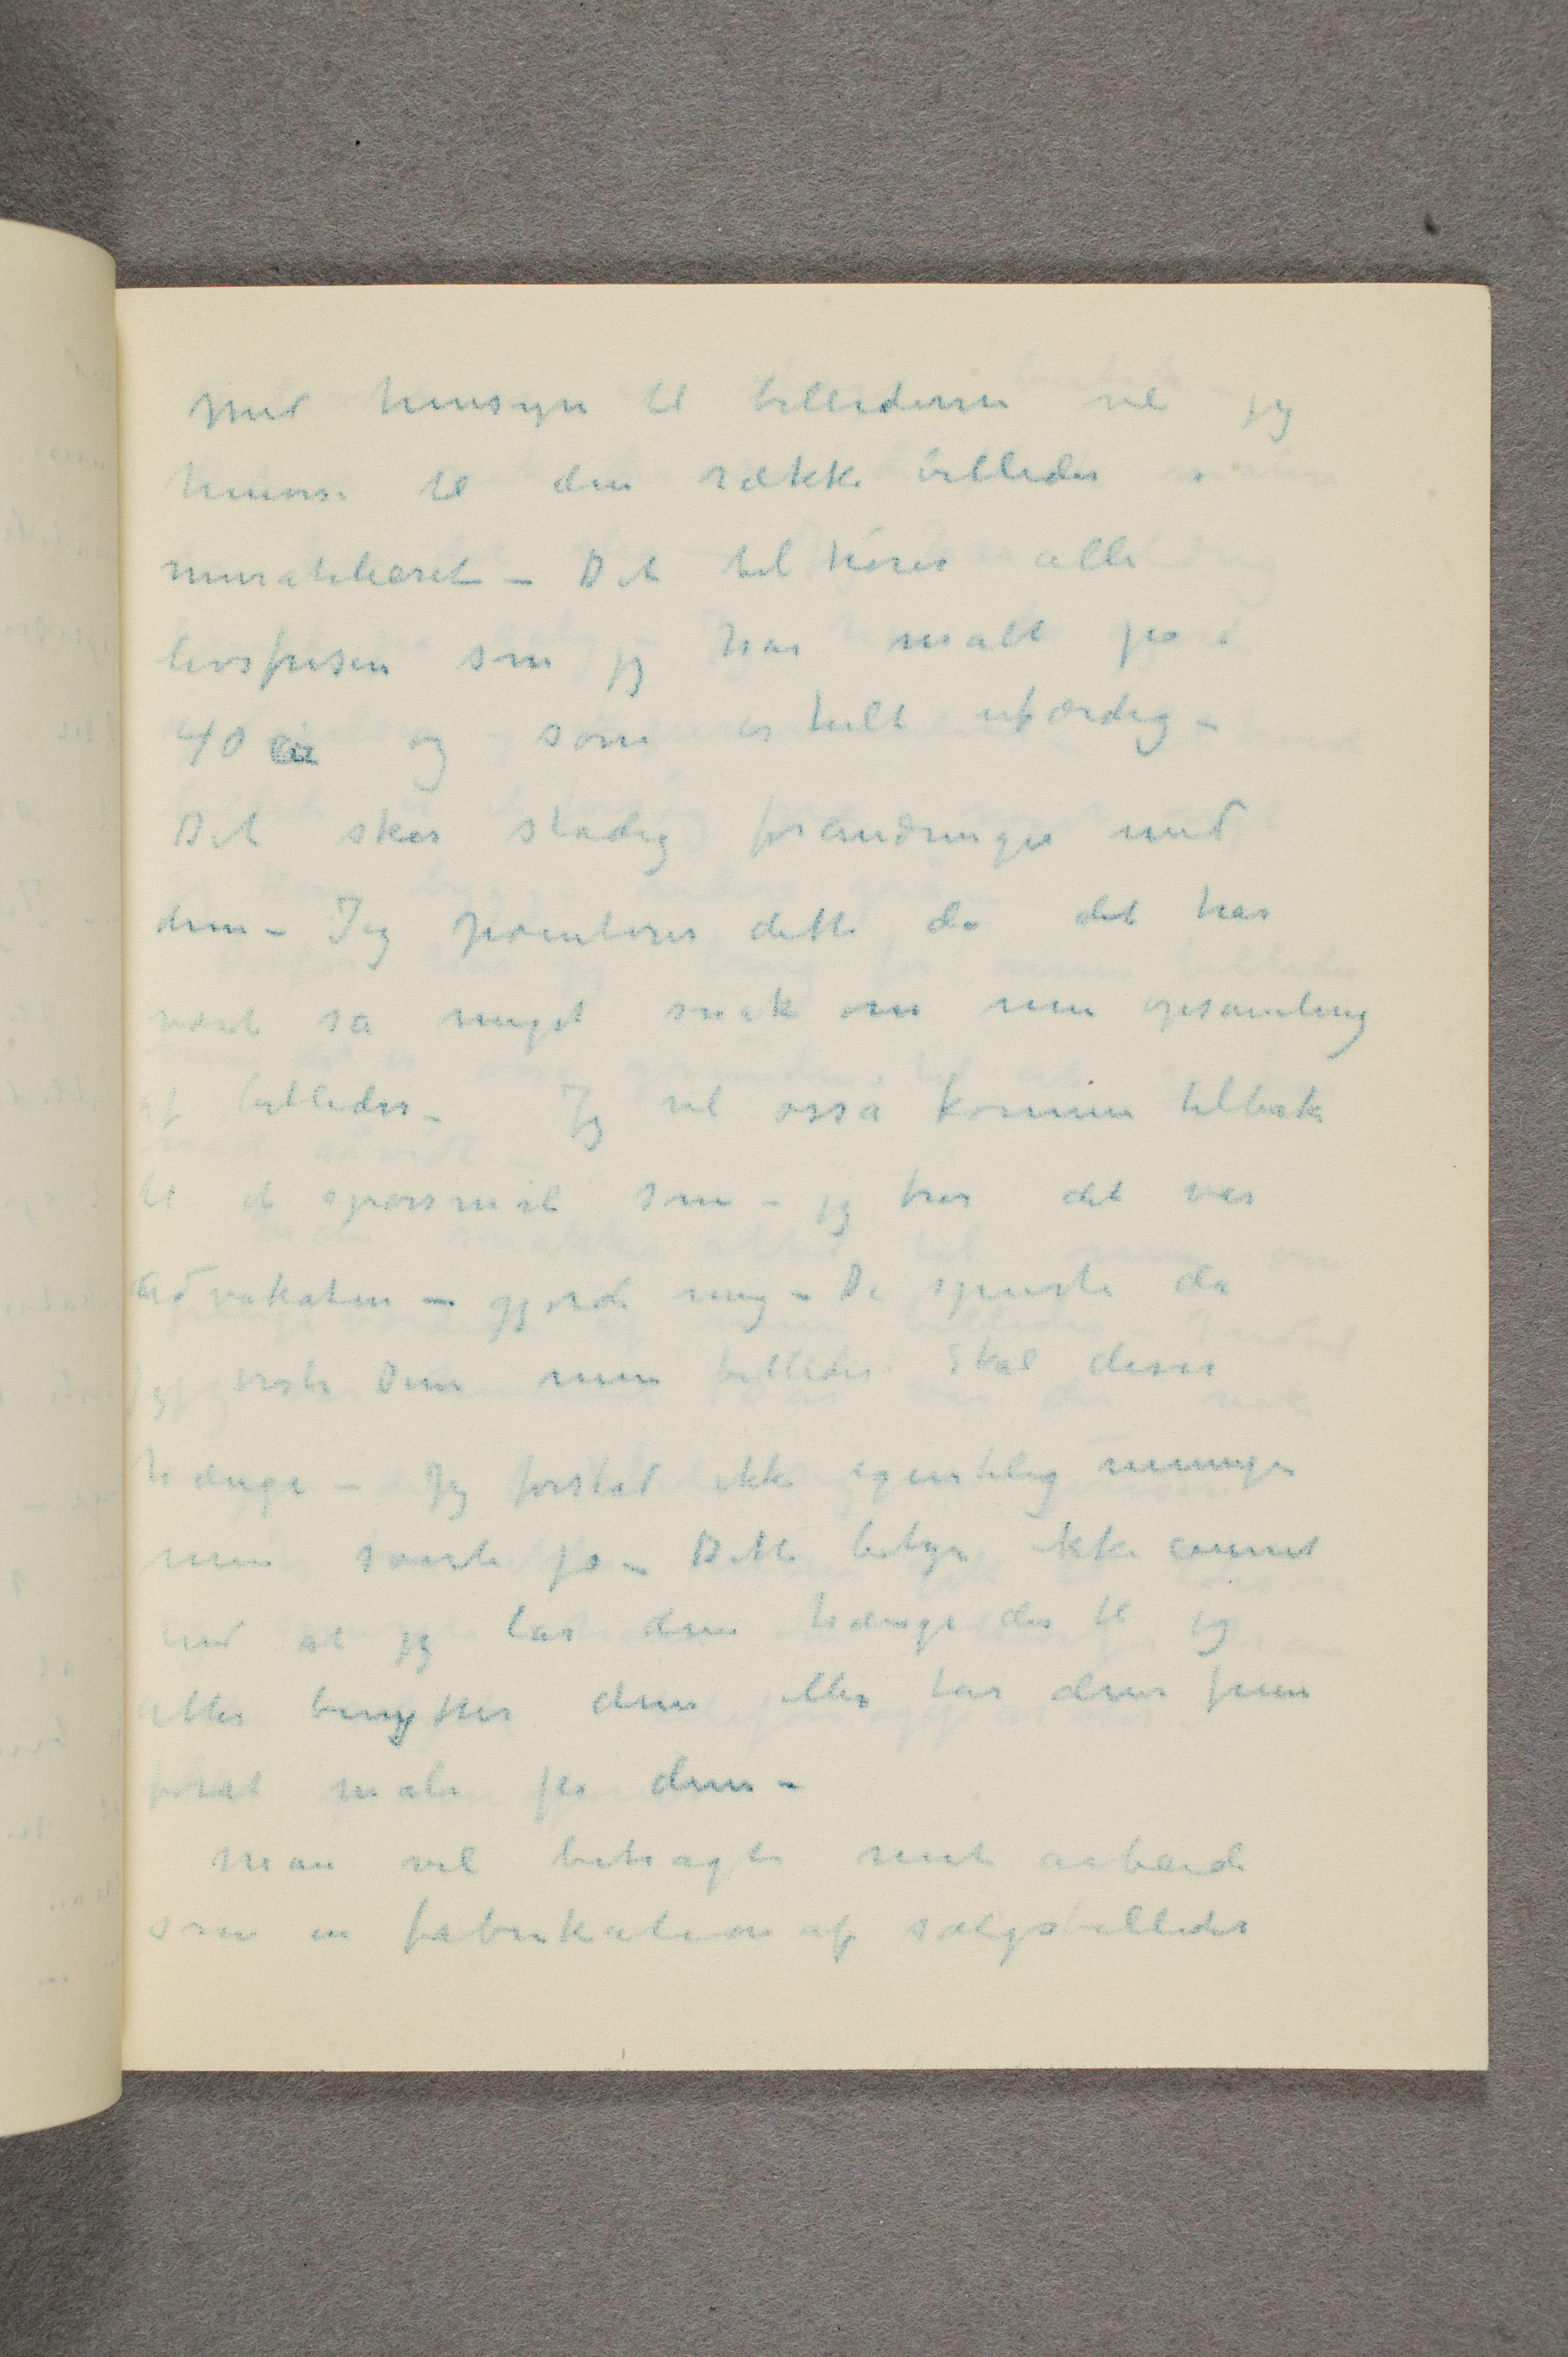 Med hensyn til billederne vil jeg
henvise til den række billeder i
muratelieret – Det tilhører alle
livsfrisen som jeg har malt på i
40 år og som er helt ufærdig –
Det sker stadig forandringer med
dem – Jeg pointerer dette da det har
vært så meget snak om min opsamling
af billeder – Jeg vil osså komme tilbake
til et spørsmål som – jeg tror det var
Advokaten – gjorde mig – De spurte da
jeg viste Dem mine billeder. Skal disse
hænge – Jeg forstod ikke egentlig meningen
men svarte ja – Dette betyr ikke annet
end at jeg lar dem hænge der til jeg
atter benytter dem eller tar dem frem
forat male på dem –
Man vil betragte mit arbeide
som en fabrikation af salgsbilleder